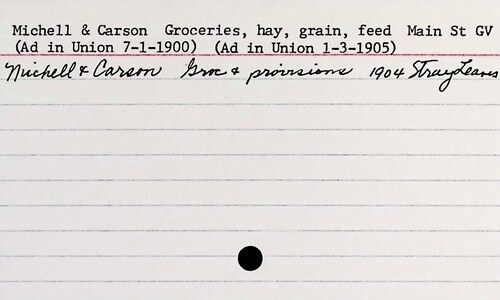 Michell & Carson Groceries, hay, grain, feed Main St GV
(Ad in Union 7-1-1900) (Ad in Union 1-3-1905)
Michell & Carson Groc & provisions 1904 Stray Leaves